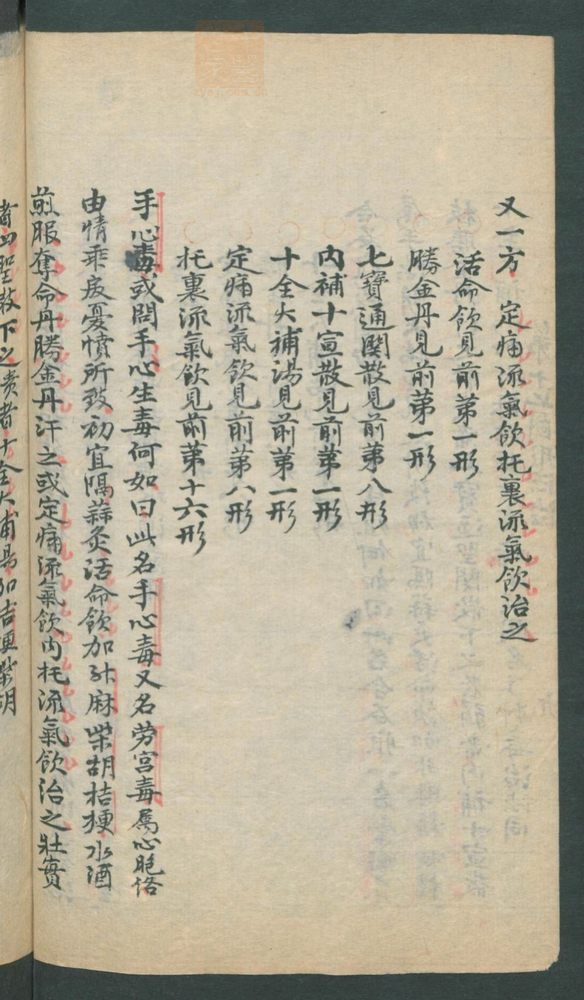 又一方 定痛流氣飲托裏流氣飲治之
活命飲見前第一形
勝金丹見前第一形
七寶通関散見前第八形
内補十宣散見前第一形
十全大補湯見前第一形
定痛流氣飲見前第八形
托裏流氣飲見前第十六形
手心毒或問手心生毒何如曰此名手心毒又名劳宫毒属心胞络
由情乖疲憂憤所致初宜隔蒜灸活命飲加升麻柴胡桔梗水酒
煎服奪命丹勝金丹汗之或定痛流氣飲内托流氣飲治之壯實
聖散下之 者十全大補湯加桔梗柴胡